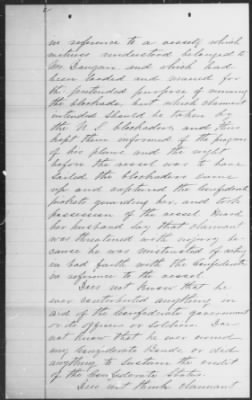 in reference to a vessel which
witness understood belonged to
Mr. Dangan and which had
been loaded and manned for
the pretended purpose of running
the blockade, but which claimant
intended should be taken by
the U S blockaders and thus
kept them informed of the progress
of his plans and the night
before the vessel was to have
sailed the blockaders came
up and captured the Confederate
pickets guarding her, and took
possession of the vessel. Heard
her husband say that claimant
was threatened with injury be-
cause he was mistrusted of acting
in bad faith with the Confederates
in reference to the vessel
Does not know that he
ever contributed anything in
aid of the Confederate government
or its officers or soldiers. Does
not know that he ever owned
any Confederate Bonds or did
anything to sustain the credit
of the Confederate States.
Does not think claimant